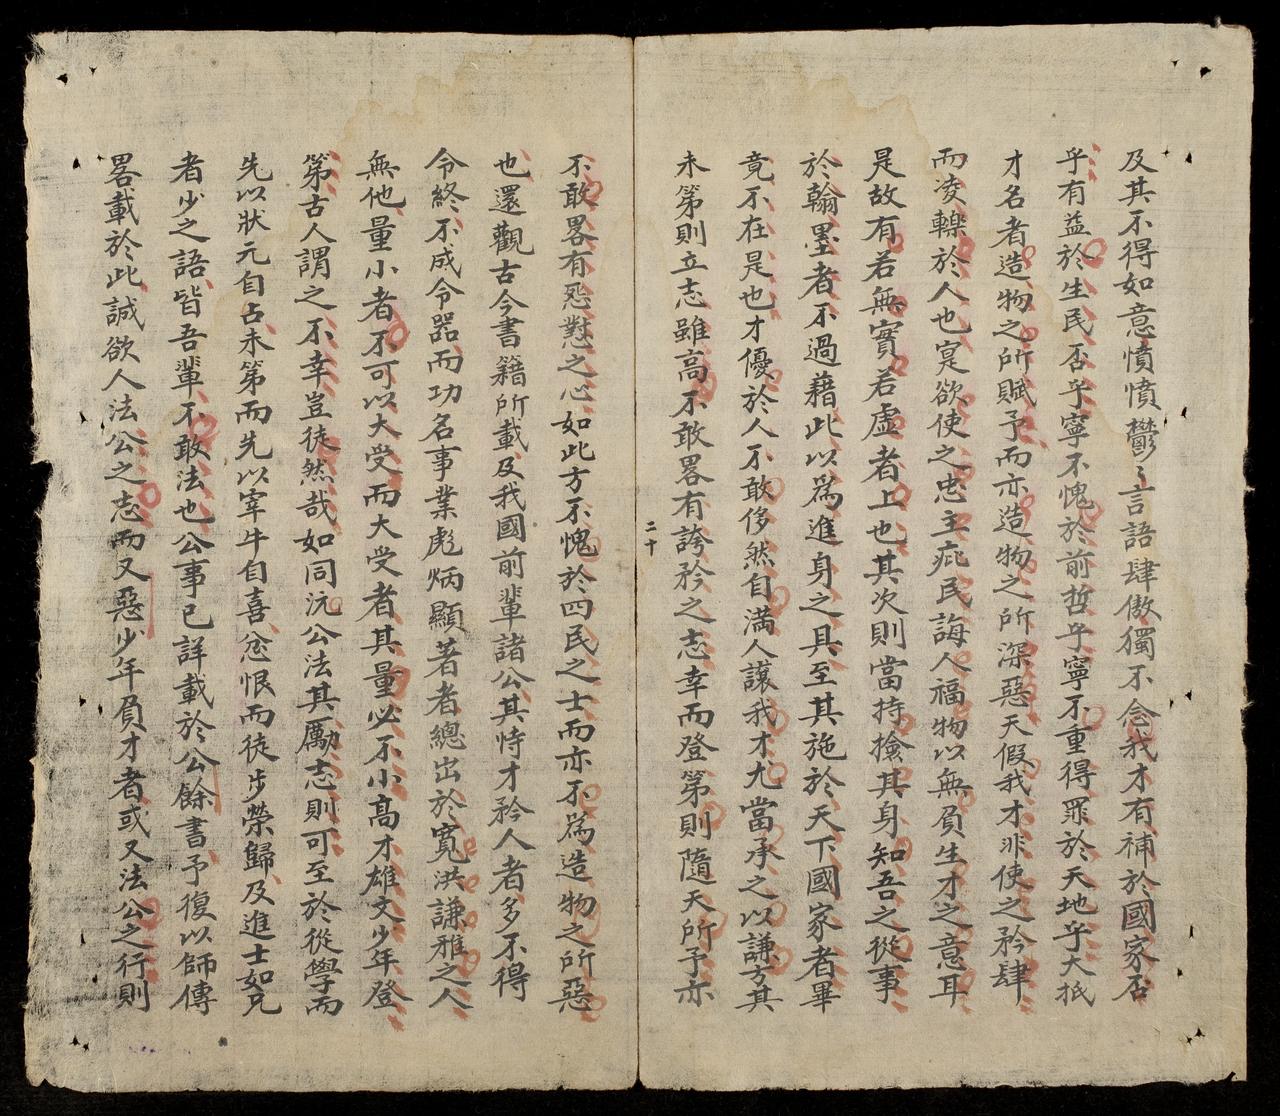 及其不得如意憤憤鬱〻言語肆傲獨不念我才有補於國家否
乎有益於生民否乎寧不愧於前哲乎寧不重得罪於天地乎大抵
才名者造物之所賦予而亦造物之所深惡天假我才非使之矜肆
而凌轢於人也寔欲使之忠主庇民誨人福物以無負生才之意耳
是故有若無實若虛者上也其次則當持撿其身知吾之從事
於翰墨者不過藉此以爲進身之具至其施於天下國家者畢
竟不在是也才優於人不敢侈然自滿人讓我才尤當承之以謙方其
未第則立志雖高不敢畧有誇矜之志幸而登第則隨天所予亦
二十
不敢畧有怨懟之心如此方不愧於四民之士而亦不爲造物之所惡
也還觀古今書籍所載及我國前輩諸公其恃才矜人者多不得
令終不成令器而功名事業彪炳顯著者總出於寬洪謙雅之人
無他量小者不可以大受而大受者其量必不小高才雄文少年登
第古人謂之不幸豈徒然哉如同沅公法其勵志則可至於從學而
先以狀元自占未第而先以宰牛自喜忿恨而徒步榮歸及進士如兄
者少之語皆吾輩不敢法也公事已詳載於公餘書予復以師傳
畧載於此誠欲人法公之志而又惡少年負才者或又法公之行則